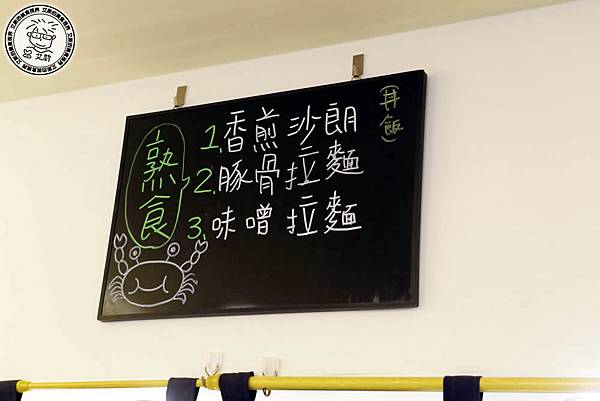 熟食
1.香煎沙朗
2.豚骨拉麵
3.味噌拉麵
(丼飯)